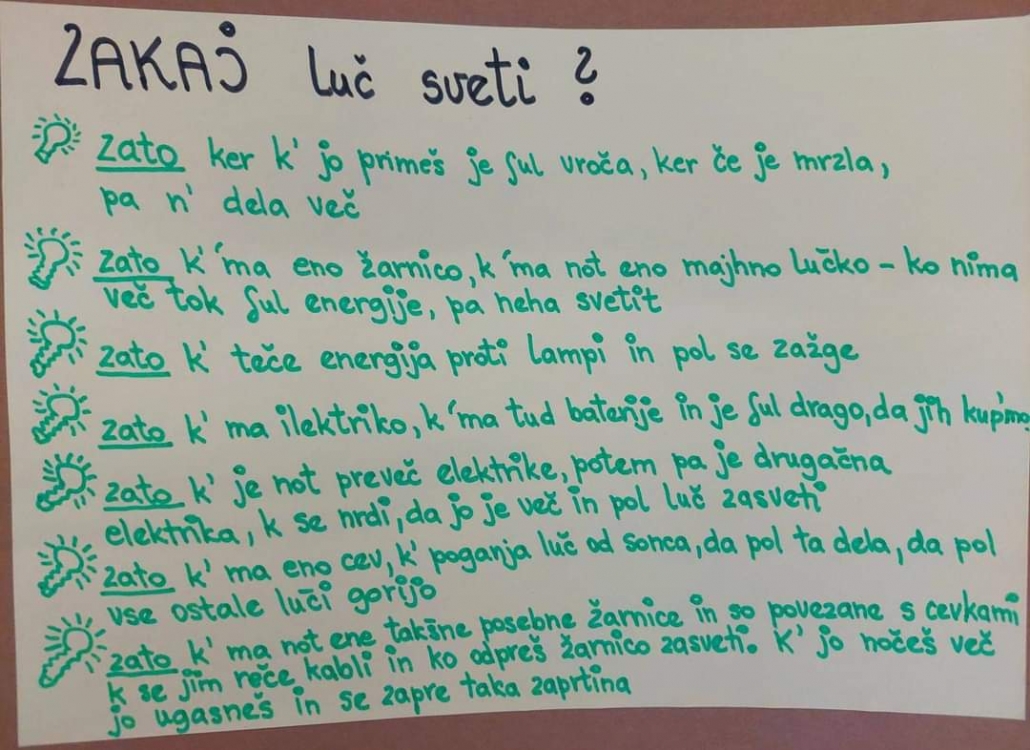 ZAKAJ luč sveti?
zato ker k' jo primeš je ful vroča, ker če je mrzla,
pa n' dela več
zato k' 'ma eno žarnico, k 'ma not eno majhno lučko - ko nima
več tok ful energije, pa neha svetit
zato k' teče energija proti lampi in pol se zažge
zato k' ma ilektriko, k 'ma tud baterije in je ful drago, da jih kup'mo
zato k' je not preveč elektrike, potem pa je drugačna
elektrika, k se nrdi, da jo je več in pol luč zasveti
zato k' ma eno cev, k' poganja luč od sonca, da pol ta dela, da pol
vse ostale luči gorijo
zato k' ma not ene takšne posebne žarnice in so povezane s cevkami
k se jim reče kabli in ko odpreš žarnico zasveti. K' jo nočeš več
jo ugasneš in se zapre taka zaprtina